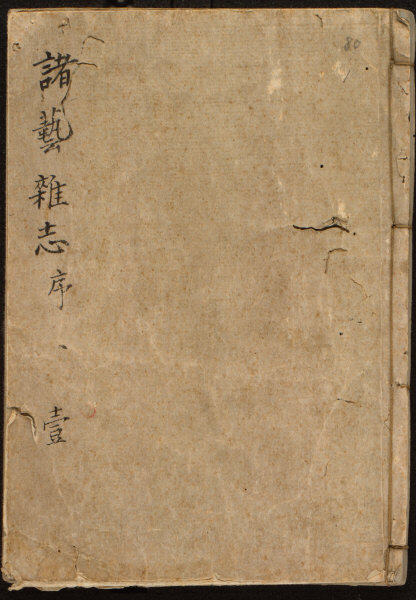 諸藝雜志序、壹
80